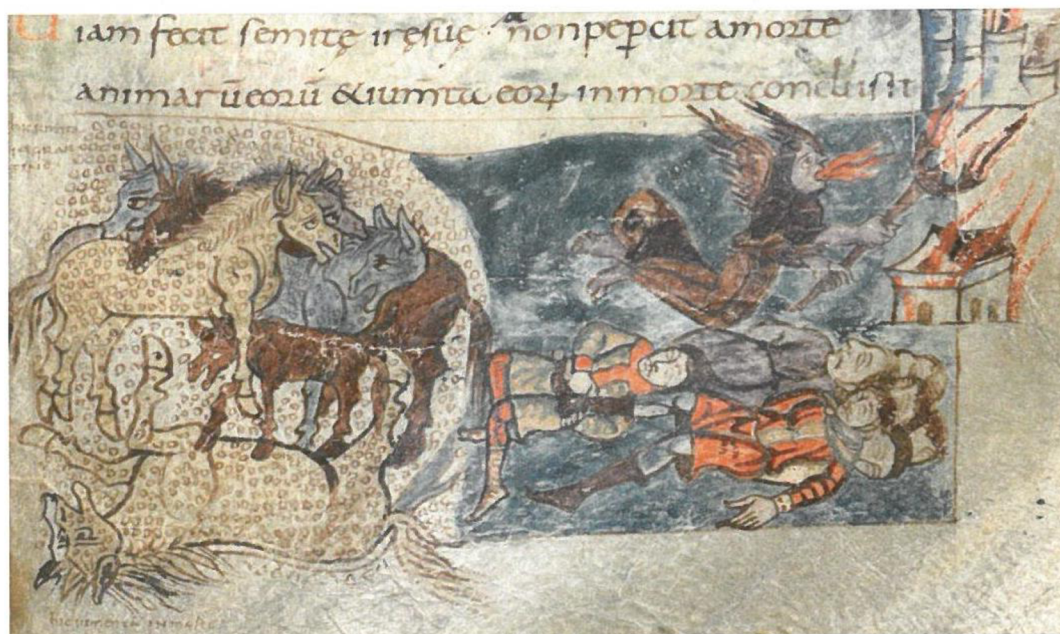 Uiam fecit semitę irę suę nonpepercit amorte
animarūeorū &iumta eorꝝ inmorte conclusit